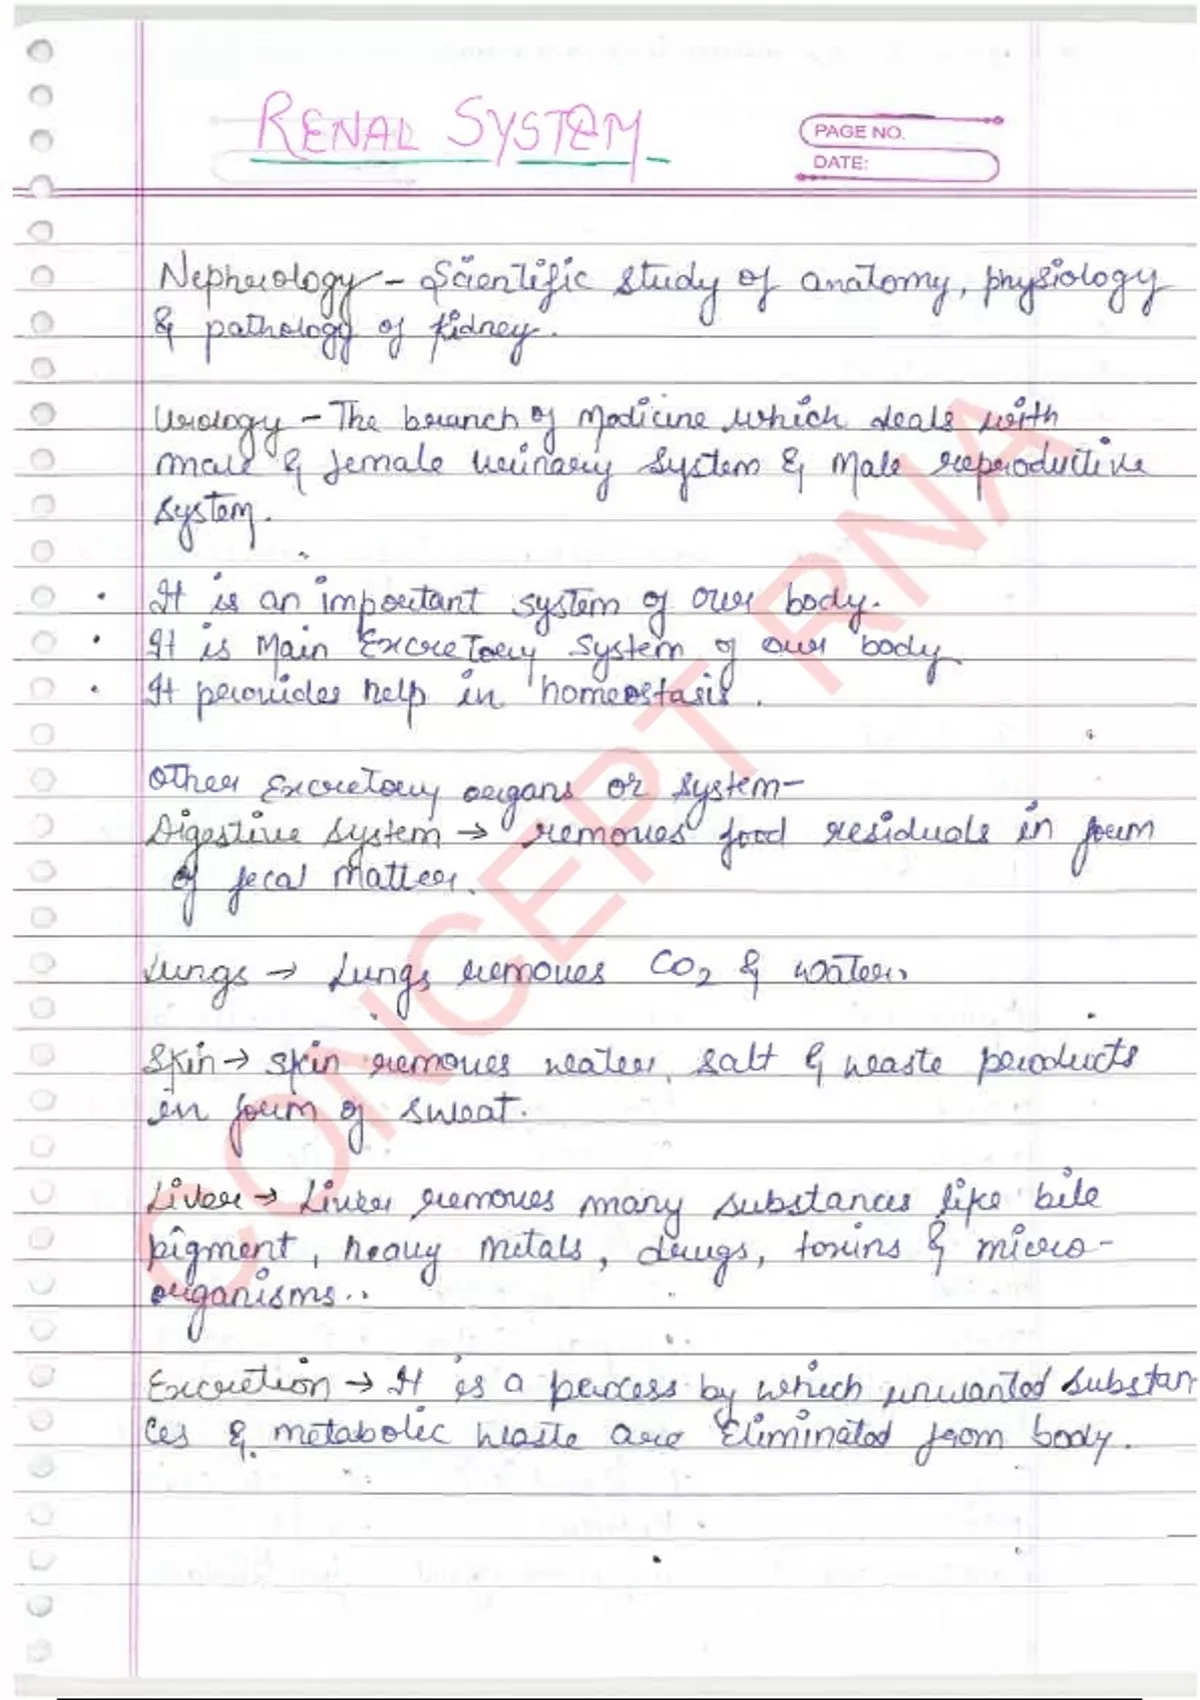 RENAL SYSTEM
PAGE NO.
DATE:
Nephrology - Scientific study of anatomy, physiology
& pathology of kidney.
Urology - The branch of Medicine which deals with
male & female urinary system & Male reproductive
system.
• It is an important system of our body.
• It is Main Excretory System of our body
• It provides help in homeostasis.
Other Excretory organs or system-
Digestive system → removes food residuals in form
of fecal matter.
Lungs → Lungs removes CO2 & water.
Skin → Skin removes water, salt & waste products
in form of sweat.
Liver → Liver removes many substances like bile
pigment, heavy metals, drugs, toxins & micro-
organisms..
Excretion → It is a process by which unwanted substan
ces & metabolic waste are eliminated from body.
CONCEPT RNA